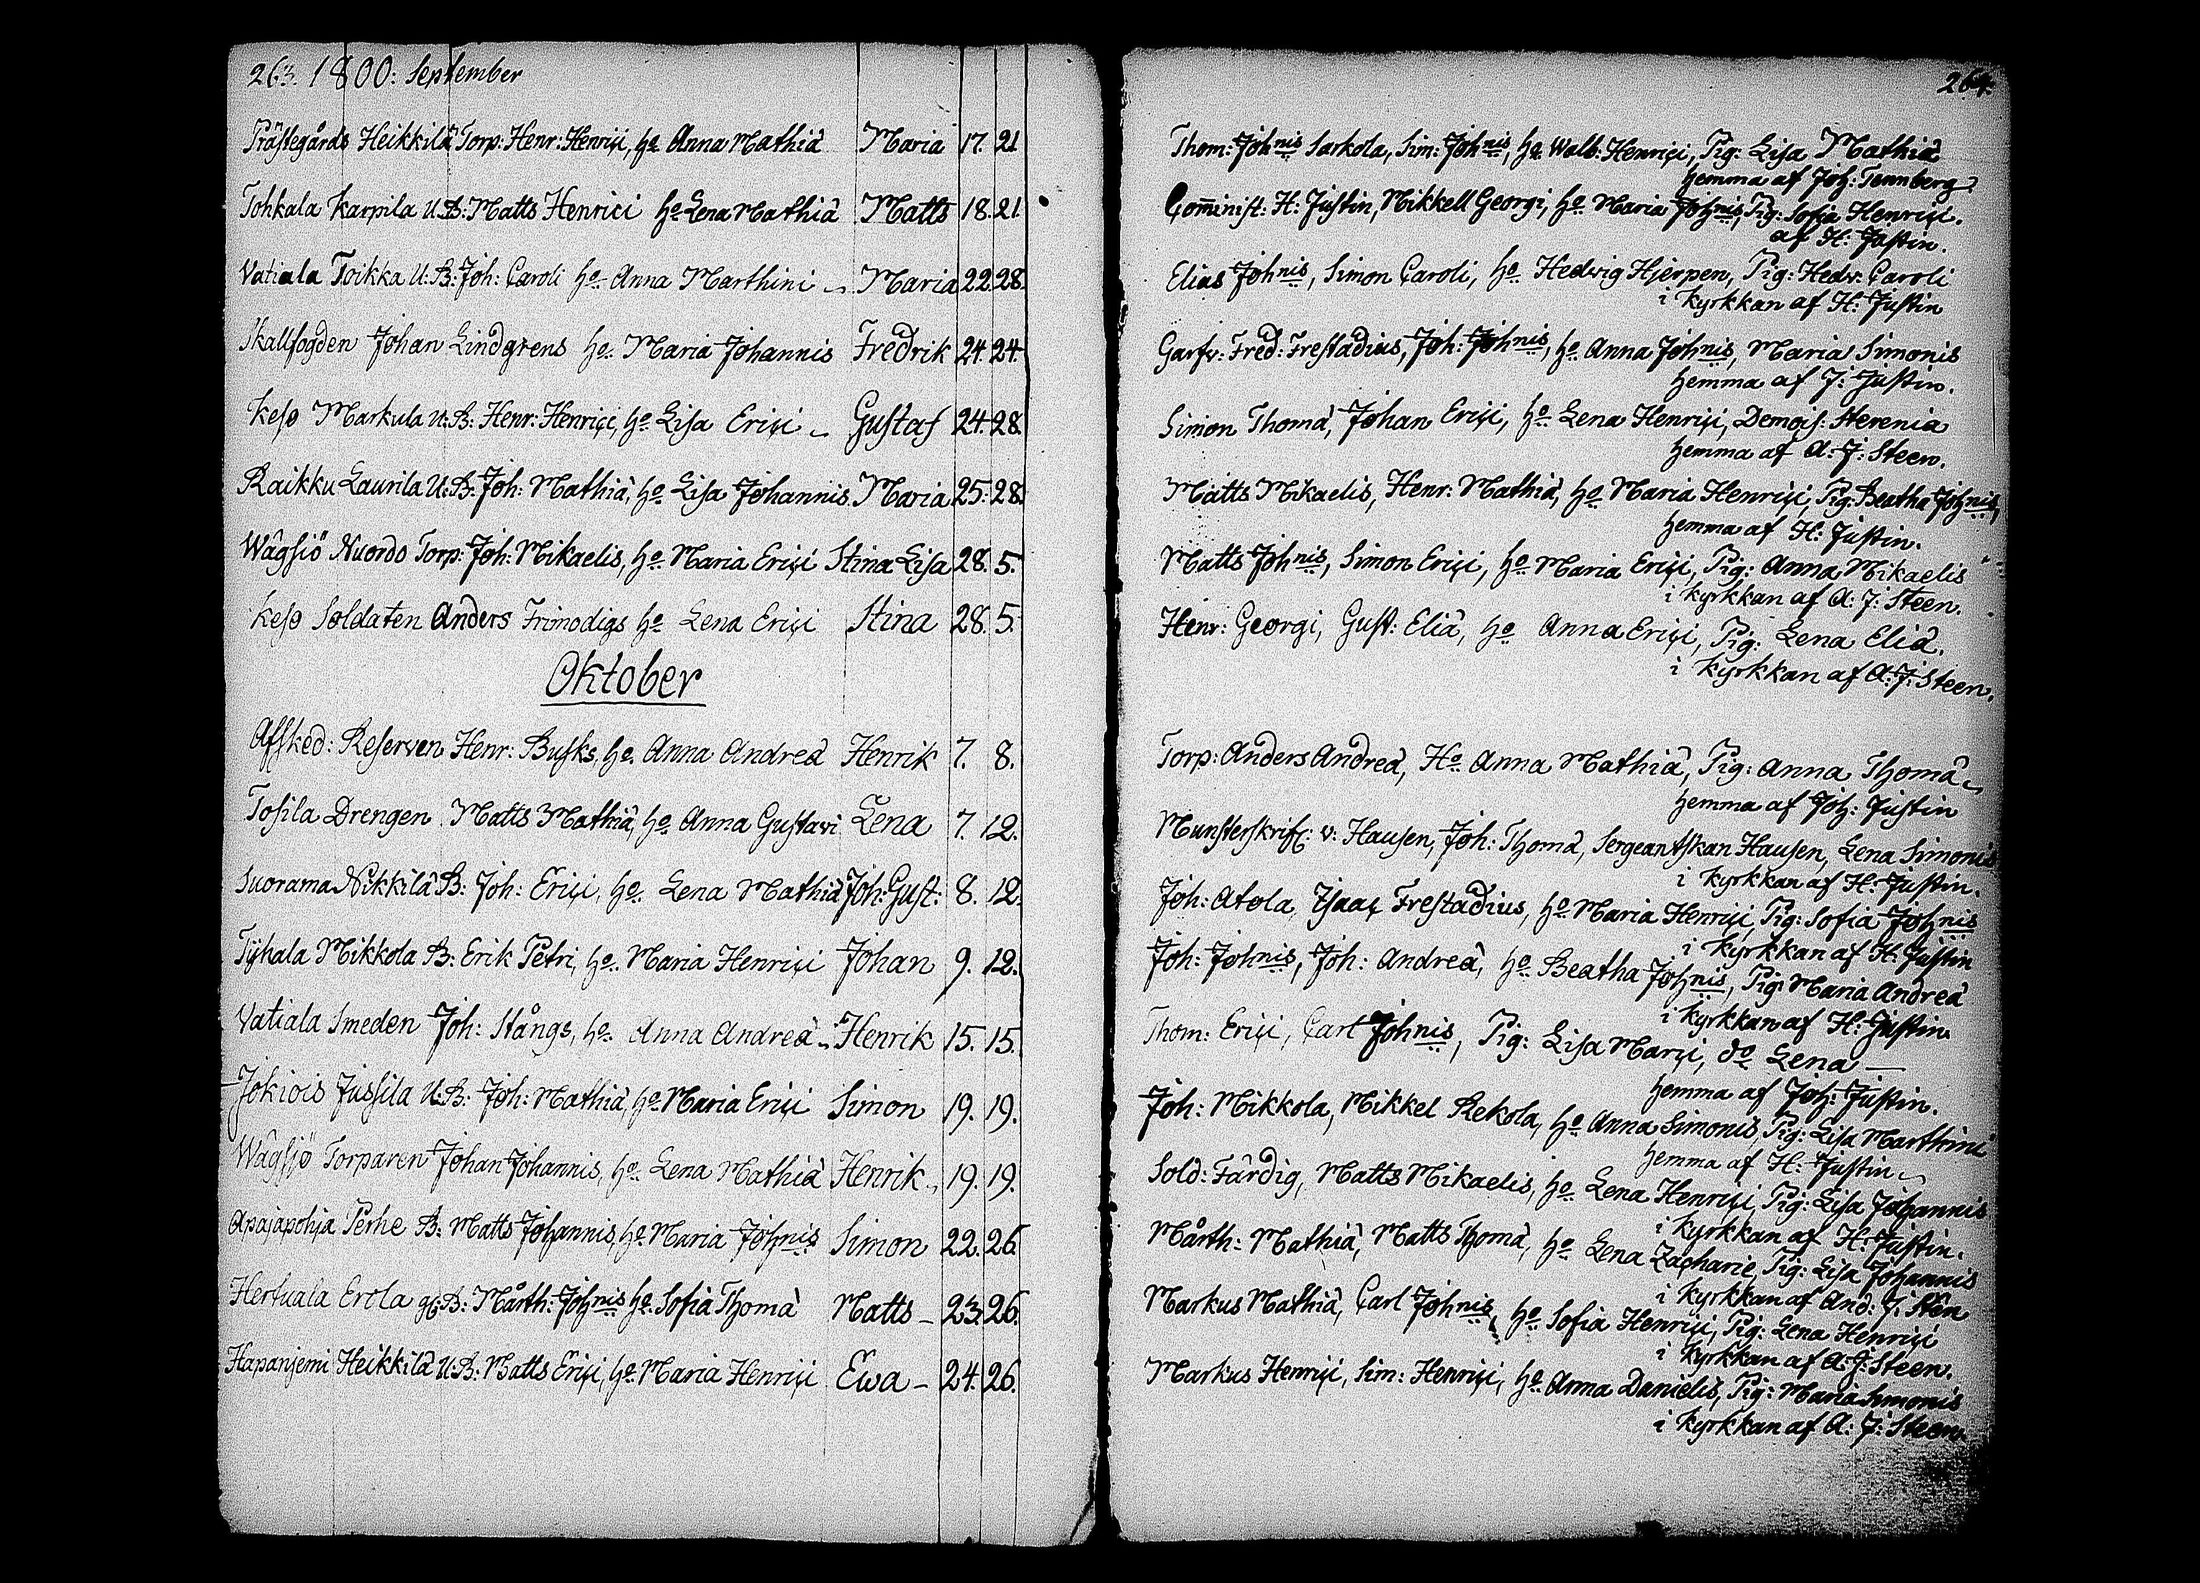 263. 1800: September
Prästegårds Heikkilä Torp: Henr: Henrici, ho Anna Mathiæ Maria 17. 21
Tohkala Karpila U:B: Matts Henrici ho Lena Mathiæ Matts 18. 21
Vatiala Toikka U:B: Joh: Caroli ho Anna Marthini Maria 22. 28
Skallfogden Johan Lindgrens ho Maria Johannis Fredrik 24. 24.
Keso Markula U:B: Henr: Henrici, ho Lisa Erici Gustaf 24. 28.
Raikku Laurila U:B: Joh: Mathiæ, ho Lisa Johannis Maria 25. 28.
Wågsjö Nuordo Torp: Joh: Mikaelis, ho Maria Erici Stina Lisa 28. 5.
Keso Soldaten Anders Frimodigs ho Lena Erici Stina 28. 5.
Oktober
Afsked: Reserven Henr: Busks, ho Anna Andreæ Henrik 7. 8.
Tosila Drengen Matts Mathiæ, ho Anna Gustavi Lena 7. 12.
Suorama Nikkilä B: Joh: Erici, ho Lena Mathiæ Joh: Gust: 8. 12.
Tyhala Mikkola B: Erik Petri, ho Maria Henrici Johan 9. 12.
Vatiala Smeden Joh: Stångs, ho Anna Andreæ Henrik 15. 15.
Jokiois Jussila U:B: Joh: Mathiæ, ho Maria Erici Simon 19. 19.
Wågsjö Torparen Johan Johannis, ho Lena Mathiæ Henrik 19. 19.
Apajapohja Perhe B: Matts Johannis, ho Maria Johnis Simon 22. 26.
Hertuala Erola B: Mårth: Johnis ho Sofia Thomæ Matts – 23. 26.
Hapanjemi Heikkilä U:B: Matts Erici, ho Maria Henrici Ewa – 24. 26.
264.
Thom: Johnis Sarkola, Sim: Johnis, ho Walb: Henrici, Pig: Lisa Mathiæ
hemma af Joh: Tennberg
Comminist: H: Justin, Mikkell Georgi, ho Maria Johnis, Pig: Sofia Henrici.
af H: Justin.
Elias Johnis, Simon Caroli, ho Hedvig Hjerpen, Pig: Hedv: Caroli
i Kyrkkan af H: Justin
Garfv: Fred: Frestadius, Joh: Johnis, ho Anna Johnis, Maria Simonis
hemma af J: Justin.
Simon Thomæ, Johan Erici, ho Lena Henrici, Demois: Herenia
hemma af A: J: Steen.
Matts Mikaelis, Henr: Mathiæ, ho Maria Henrici, Pig: Beatha Johnis,
hemma af H: Justin.
Matts Johnis, Simon Erici, ho Maria Erici, Pig: Anna Mikaelis
i Kyrkkan af A: J: Steen.
Henr: Georgi, Gust: Eliæ, ho Anna Erici, Pig: Lena Eliæ.
i Kyrkkan af A: J: Steen.
Torp: Anders Andreæ, Ho Anna Mathiæ, Pig: Anna Thomæ
hemma af Joh: Justin
Munsterskrif: v: Hausen, Joh: Thomæ, Sergeantskan Hausen, Lena Simonis
i Kyrkkan af H: Justin.
Joh: Atola, Isaac Frestadius, ho Maria Henrici, Pig: Sofia Johnis
i Kyrkkan af H: Justin
Joh: Johnis, Joh: Andreæ, ho Beatha Johnis, Pig: Maria Andreæ
i Kyrkkan af H: Justin
Thom: Erici, Carl Johnis, Pig: Lisa Marci, do Lena —
hemma af Joh: Justin.
Joh: Mikkola, Mikkel Rekola, ho Anna Simonis, Pig: Lisa Marthini
hemma af H: Justin
Sold: Färdig, Matts Mikaelis, ho Lena Henrici, Pig: Lisa Johannis
i Kyrkkan af H: Justin.
Mårth: Mathiæ, Matts Thomæ, ho Lena Zacharie, Pig: Lisa Johannis
i Kyrkkan af And: J: Stén
Markus Mathiæ, Carl Johnis, ho Sofia Henrici, Pig: Lena Henrici
i Kyrkkan af A: J: Steen.
Markus Henrici, Sim: Henrici, ho Anna Danielis, Pig: Maria Simonis
i Kyrkkan af A: J: Steen.